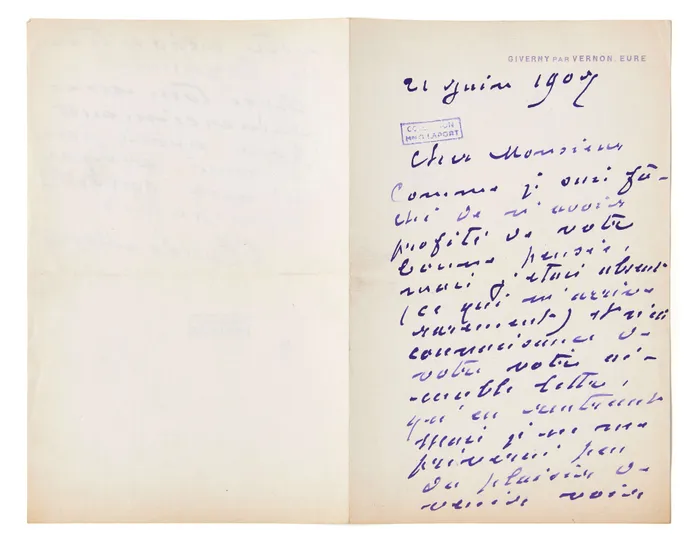 GIVERNY PAR VERNON, EURE
21 juin 1907
COLLECTION
H. LAPORT
Cher Monsieur
Comme je suis fâ-
ché de n'avoir
profité de votre
bonne pensée,
mais j'étais absent
(ce qui m'arrive
rarement) et n'ai
connaissance de
votre votre ai-
-mable lettre,
qu'en rentrant
Mais je ne me
priverai pas
du plaisir de
venir voir